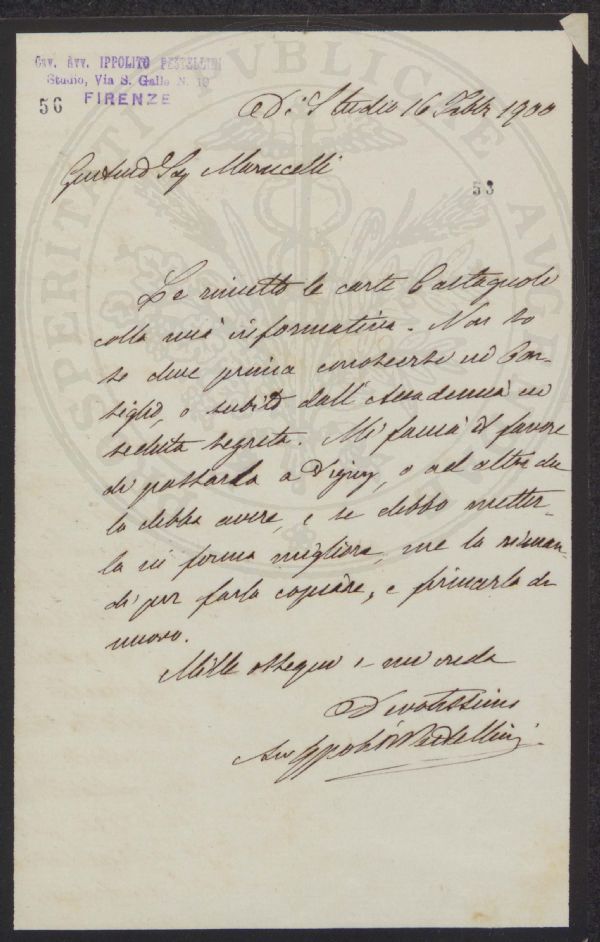 Cav. Avv. IPPOLITO PESTELLINI
Studio, Via S. Gallo N. 19
56 FIRENZE
Di Studio 16 Febb 1900
Sig Marucelli
53
Le rimetto le carte Castagnoli
colla mia informativa. Non so
se deve prima conoscersi in Con-
siglio, o subito dall'Accademia in
seduta segreta. Mi faccia il favore
di passarla a , o ad altri che
la debba avere, e se debbo metter-
la in forma migliore, me la riman-
di per farla copiare, e firmarla di
nuovo.
Mille ossequi e mi creda
Devotissimo
Avv Ippolito Pestellini
PROSPERITATI PUBLICAE AUGENDAE